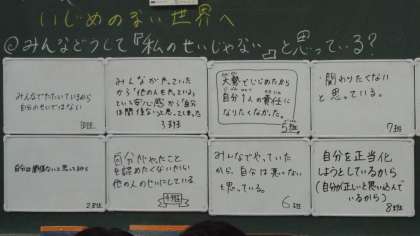 いじめのない世界へ
◎みんなどうして『私のせいじゃない』と思っている?
みんなでたたいているから
自分のせいではない
みんながやっていた
から「他の人もやっていた」
という安心感から「自分
は関係ない」と思ってしまった
3班
大勢でいじめたから
自分1人の責任に
なりたくなかった。
5班
関わりたくない
と思っている。
7班
自分は関係ないと思ってるから
2班
自分がやったこと
を認めたくないから
他の人のせいにしている。
4班
みんなでやっていた
から、自分は悪いない
と思っている。
6班
自分を正当化
しようとしているから
(自分が正しいと思い込んで
いるから)
8班